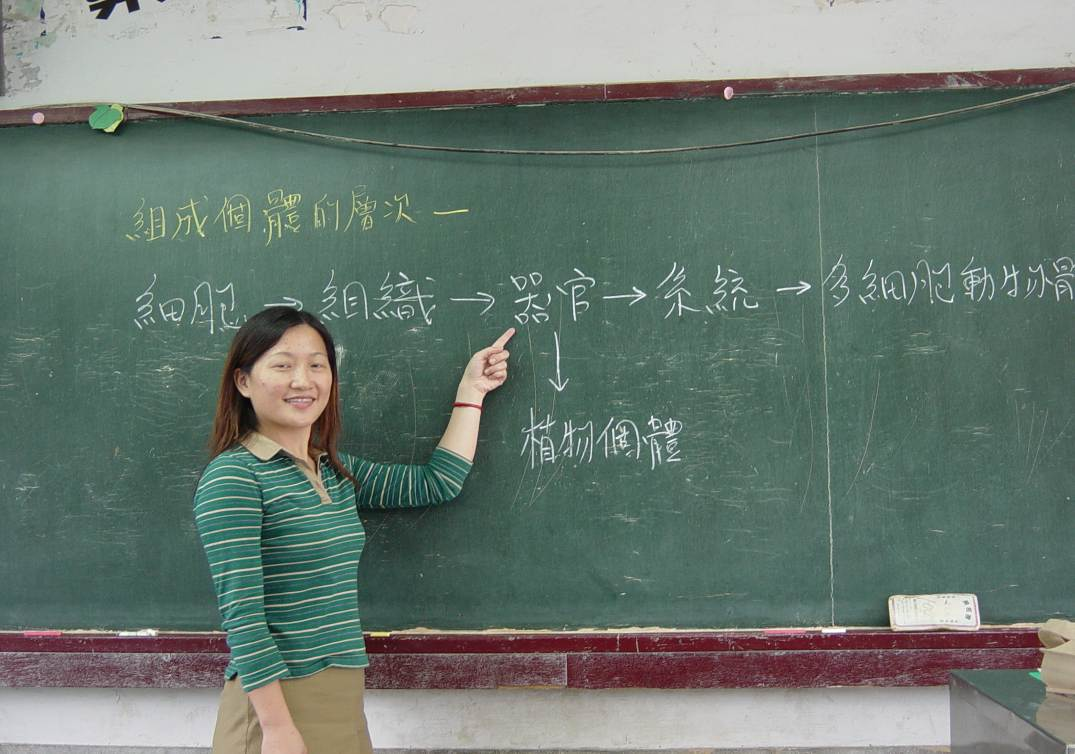 組成個體的層次一
細胞 → 組織 → 器官 → 系統 → 多細胞動物體
↓
植物個體